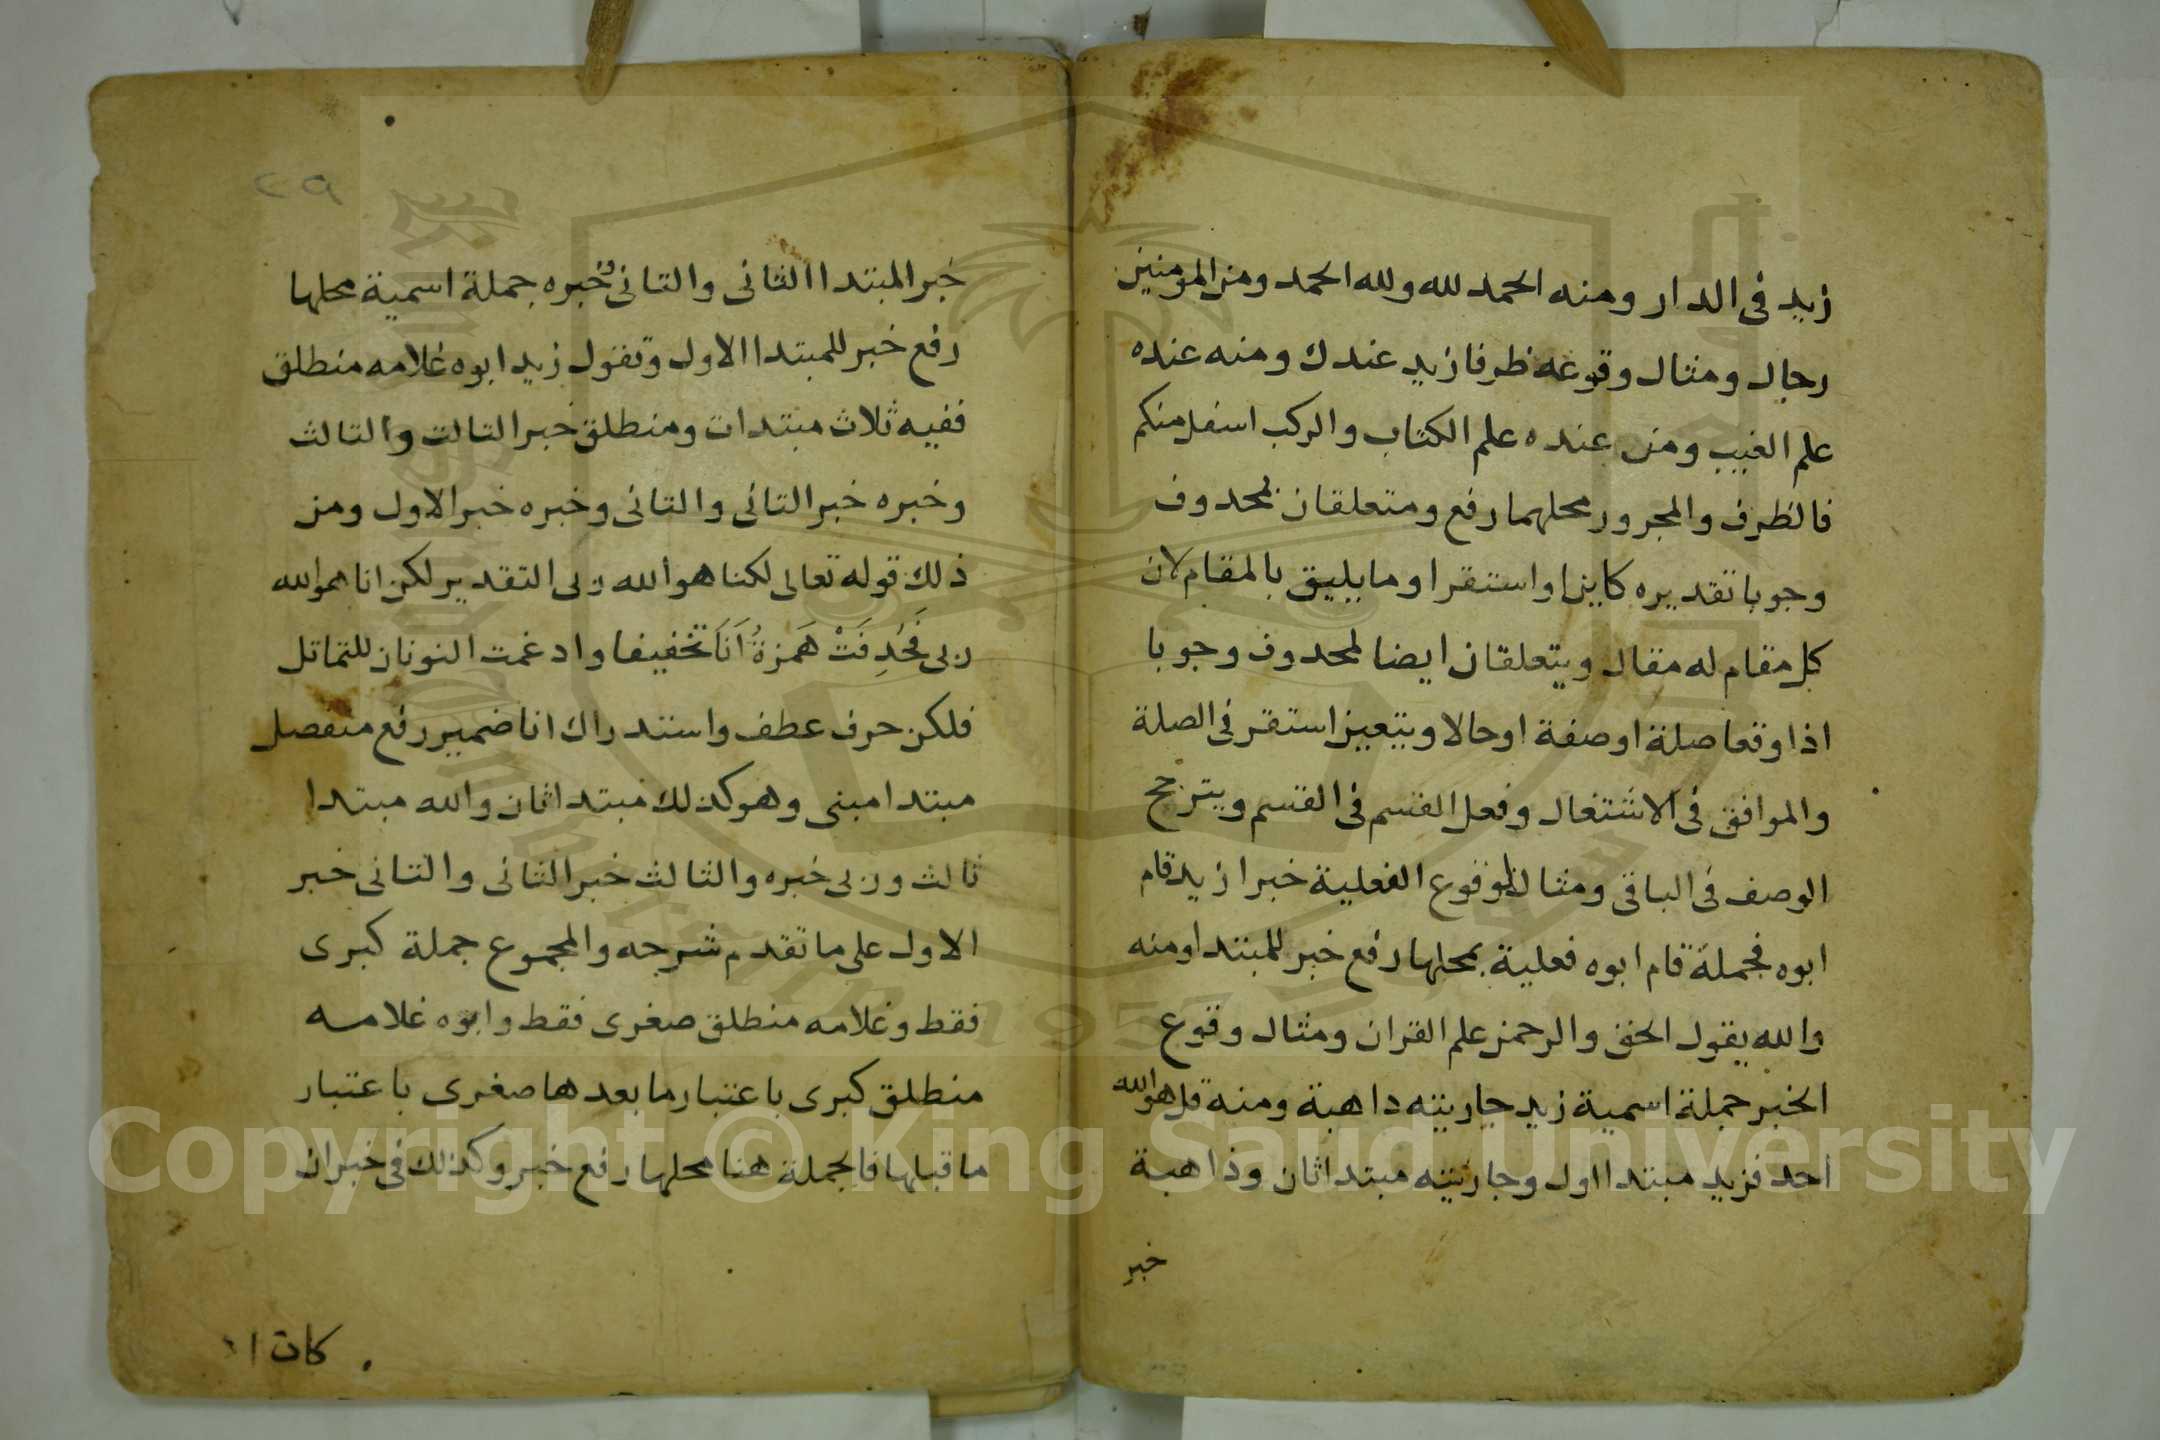 زيد فى الدار ومنه الحمد لله ولله الحمد ومن المومنين
رجال ومثال وقوعه ظرفا زيد عندك ومنه عنده
علم الغيب ومن عنده علم الكتاب والركب اسفل منكم
فالظرف والمجرور محلهما رفع ومتعلقان بمحدوف
وجوبا تقديره كاين او استقر او ما يليق بالمقام لان
كل مقام له مقال ويتعلقان ايضا لمحدوف وجوبا
اذا وقعا صلة او صفة او حالا ويتعين استقر فى الصلة
والموافق فى الاشتغال وفعل القسم فى القسم ويترجح
الوصف فى الباقى ومثال وقوع الفعلية خبرا زيد قام
ابوه فجملة قام ابوه فعلية محلها رفع خبر للمبتدا ومنه
والله يقول الحق والرحمن علم القران ومثال وقوع
الخبر جملة اسمية زيد جاريته داهبة ومنه قل هو الله
احد فزيد مبتدا اول وجاريته مبتدا ثان وذاهبة
خبر
٢٩
خبر المبتدا الثانى والتانى وخبره جملة اسمية محلها
رفع خبر للمبتدا الاول وتقول زيد ابوه غلامه منطلق
ففيه ثلاث مبتدات ومنطلق خبر التالت والتالث
وخبره خبر التانى والتانى وخبره خبر الاول ومن
ذلك قوله تعالى لكنا هو الله ربى التقدير لكن انا هو الله
ربى فَحُدِفَتْ هَمزةُ اَنَا تخفيفا وادغمت النونان للتماتل
فلكن حرف عطف واستدراك انا ضمير رفع منفصل
مبتدا مبنى وهو كذلك مبتدا ثان والله مبتدا
ثالث وربى خبره والثالث خبر الثانى والتانى خبر
الاول على ما تقدم شرحه والمجموع جملة كبرى
فقط وغلامه منطلق صغرى فقط وابوه غلامه
منطلق كبرى باعتبار ما بعدها صغرى باعتبار
ما قبلها فالجملة هنا محلها رفع خبر وكذلك فى خبر ان
كان ا
Copyright © King Saud University